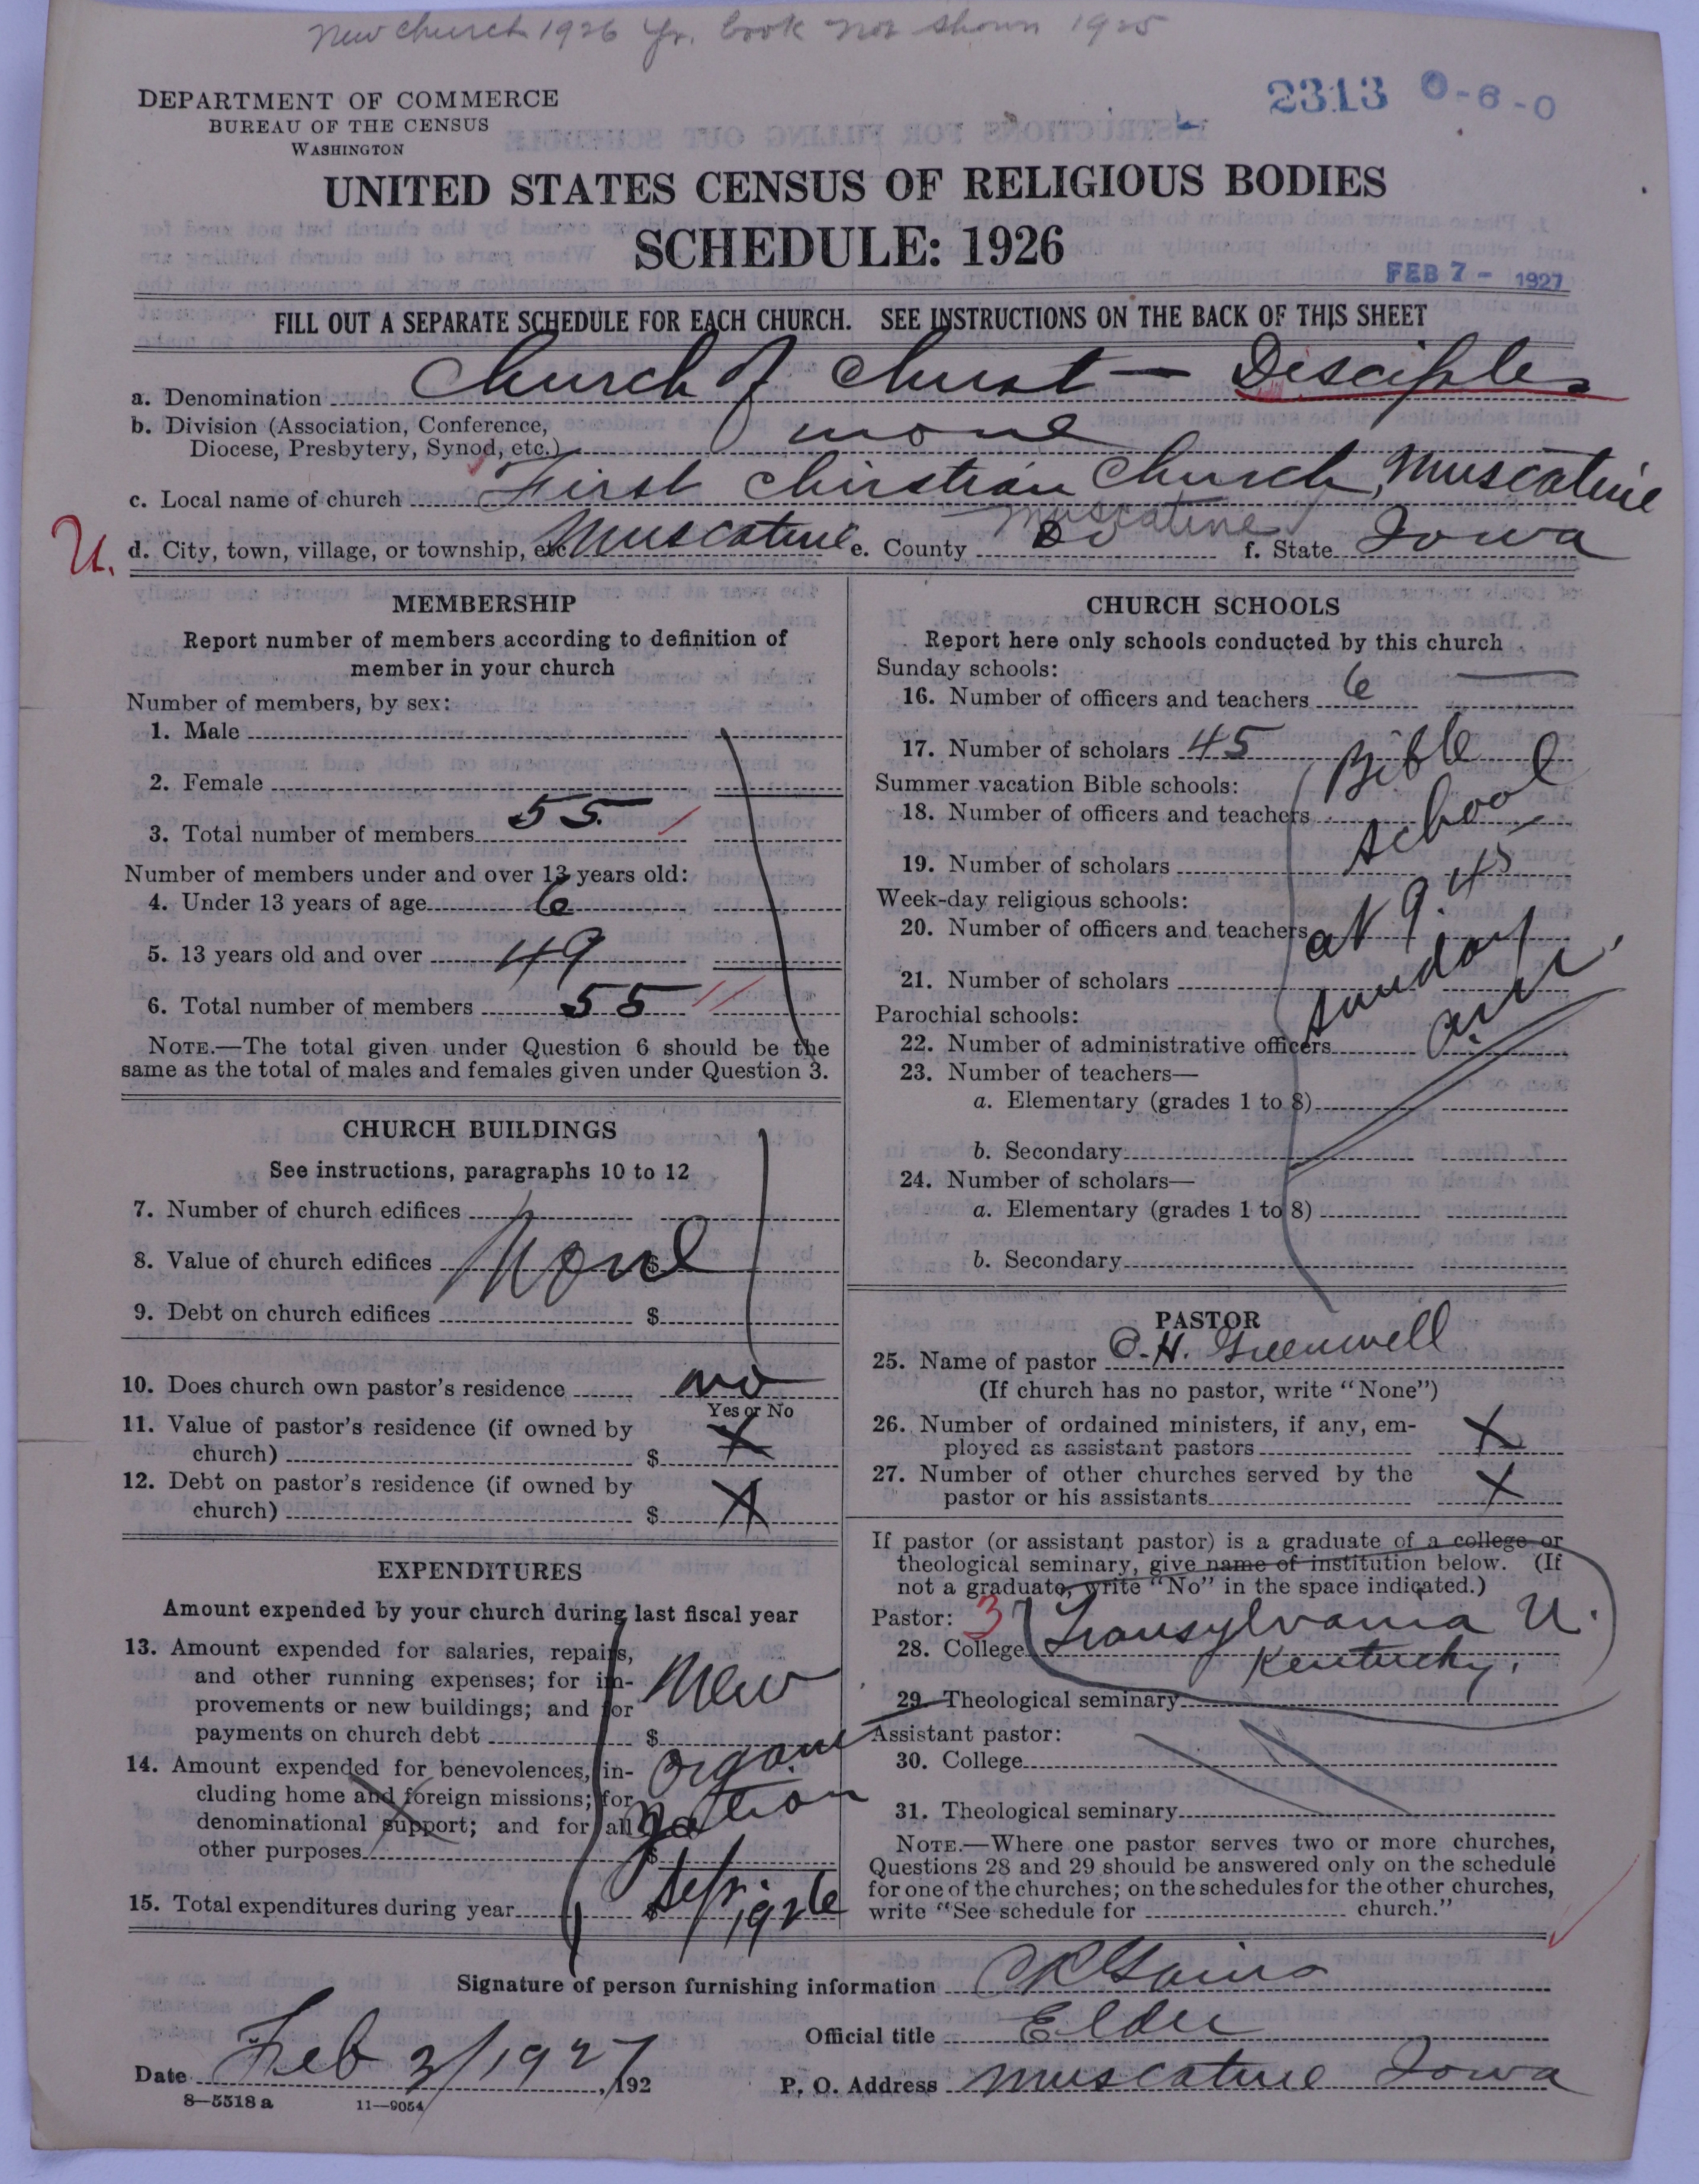 New church 1926 Yr. book not shown 1925
2313 0-6-0
DEPARTMENT OF COMMERCE
BUREAU OF THE CENSUS
WASHINGTON
UNITED STATES CENSUS OF RELIGIOUS BODIES
SCHEDULE: 1926
FEB 7 - 1927
FILL OUT A SEPARATE SCHEDULE FOR EACH CHURCH. SEE INSTRUCTIONS ON THE BACK OF THIS SHEET
a. Denomination Church of Christ — Disciples
b. Division (Association, Conference,
Diocese, Presbytery, Synod, etc.) none
c. Local name of church First Chirstian Church, Muscatine
U. d. City, town, village, or township, etc. Muscatine e. County Muscatine Do f. State Iowa
MEMBERSHIP
Report number of members according to definition of
member in your church
Number of members, by sex:
1. Male
2. Female
3. Total number of members 55
Number of members under and over 13 years old:
4. Under 13 years of age 6
5. 13 years old and over 49
6. Total number of members 55
NOTE.—The total given under Question 6 should be the
same as the total of males and females given under Question 3.
CHURCH BUILDINGS
See instructions, paragraphs 10 to 12
7. Number of church edifices
8. Value of church edifices $ None
9. Debt on church edifices $
10. Does church own pastor's residence no
Yes or No
11. Value of pastor's residence (if owned by
church) $ X
12. Debt on pastor's residence (if owned by
church) $ X
EXPENDITURES
Amount expended by your church during last fiscal year
13. Amount expended for salaries, repairs,
and other running expenses; for im-
provements or new buildings; and for
payments on church debt $
New
14. Amount expended for benevolences, in-
cluding home and foreign missions; for
denominational support; and for all
other purposes $
organi
zation
15. Total expenditures during year $
Sept.
1926
CHURCH SCHOOLS
Report here only schools conducted by this church
Sunday schools:
16. Number of officers and teachers 6
17. Number of scholars 45
Summer vacation Bible schools:
18. Number of officers and teachers
19. Number of scholars
Week-day religious schools:
20. Number of officers and teachers
21. Number of scholars
Bible
school
at 9:45
Sunday
a.m.
Parochial schools:
22. Number of administrative officers
23. Number of teachers—
a. Elementary (grades 1 to 8)
b. Secondary
24. Number of scholars—
a. Elementary (grades 1 to 8)
b. Secondary
PASTOR
25. Name of pastor C.H. Greenwell
(If church has no pastor, write "None")
26. Number of ordained ministers, if any, em-
ployed as assistant pastors X
27. Number of other churches served by the
pastor or his assistants X
If pastor (or assistant pastor) is a graduate of a college or
theological seminary, give name of institution below. (If
not a graduate, write "No" in the space indicated.)
Pastor: 3
28. College Transylvania U.
Kentucky.
29. Theological seminary
Assistant pastor:
30. College
31. Theological seminary
NOTE.—Where one pastor serves two or more churches,
Questions 28 and 29 should be answered only on the schedule
for one of the churches; on the schedules for the other churches,
write "See schedule for church."
Signature of person furnishing information
Official title Elder
Date Feb 3/1927, 192
P. O. Address Muscatine Iowa
8—5518 a 11—9054